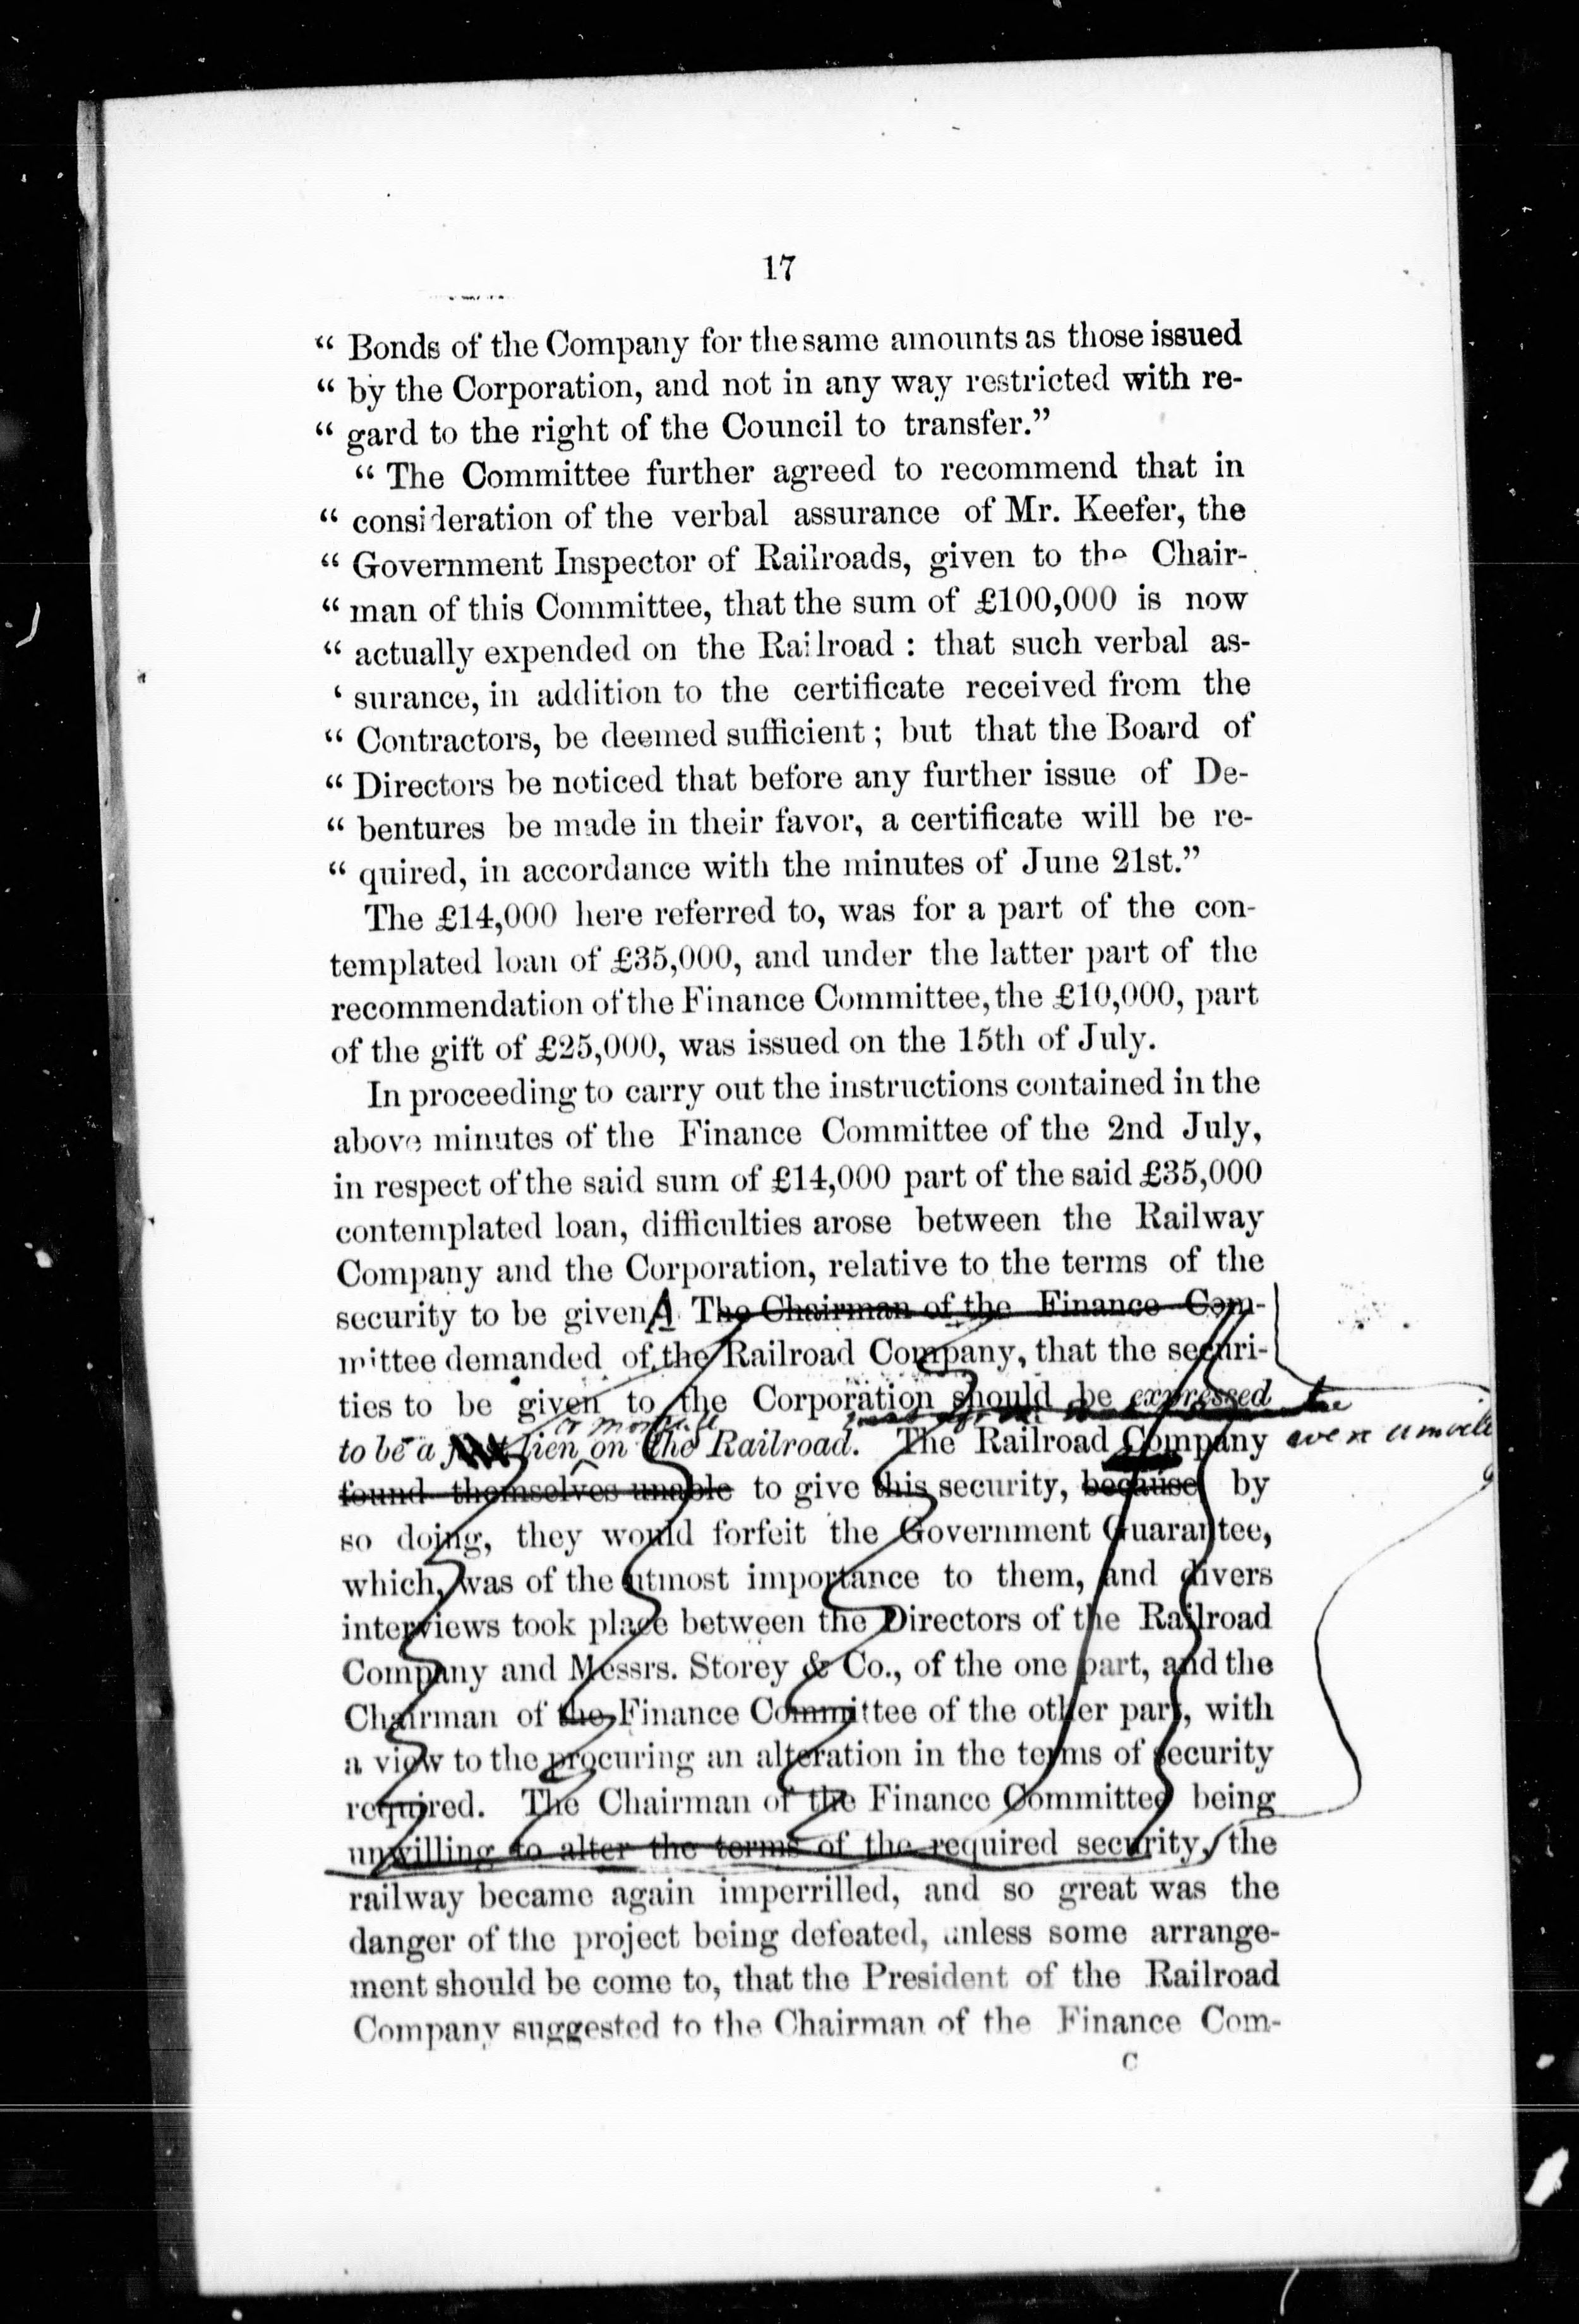 17
“ Bonds of the Company for the same amounts as those issued
“ by the Corporation, and not in any way restricted with re-
“ gard to the right of the Council to transfer.”
“ The Committee further agreed to recommend that in
“ consideration of the verbal assurance of Mr. Keefer, the
“ Government Inspector of Railroads, given to the Chair-
“ man of this Committee, that the sum of £100,000 is now
“ actually expended on the Railroad : that such verbal as-
‘ surance, in addition to the certificate received from the
“ Contractors, be deemed sufficient ; but that the Board of
“ Directors be noticed that before any further issue of De-
“ bentures be made in their favor, a certificate will be re-
“ quired, in accordance with the minutes of June 21st.”
The £14,000 here referred to, was for a part of the con-
templated loan of £35,000, and under the latter part of the
recommendation of the Finance Committee, the £10,000, part
of the gift of £25,000, was issued on the 15th of July.
In proceeding to carry out the instructions contained in the
above minutes of the Finance Committee of the 2nd July,
in respect of the said sum of £14,000 part of the said £35,000
contemplated loan, difficulties arose between the Railway
Company and the Corporation, relative to the terms of the
security to be given The Chairman of the Finance Com-
mittee demanded of the Railroad Company, that the securi-
ties to be given to the Corporation should be expressed
or mortgage
to be a lien on the Railroad. The Railroad Company
were
found themselves unable to give this security, because by
so doing, they would forfeit the Government Guarantee,
which, was of the utmost importance to them, and divers
interviews took place between the Directors of the Railroad
Company and Messrs. Storey & Co., of the one part, and the
Chairman of the Finance Committee of the other part, with
a view to the procuring an alteration in the terms of security
required. The Chairman of the Finance Committee being
unwilling to alter the terms of the required security, the
railway became again imperrilled, and so great was the
danger of the project being defeated, unless some arrange-
ment should be come to, that the President of the Railroad
Company suggested to the Chairman of the Finance Com-
C